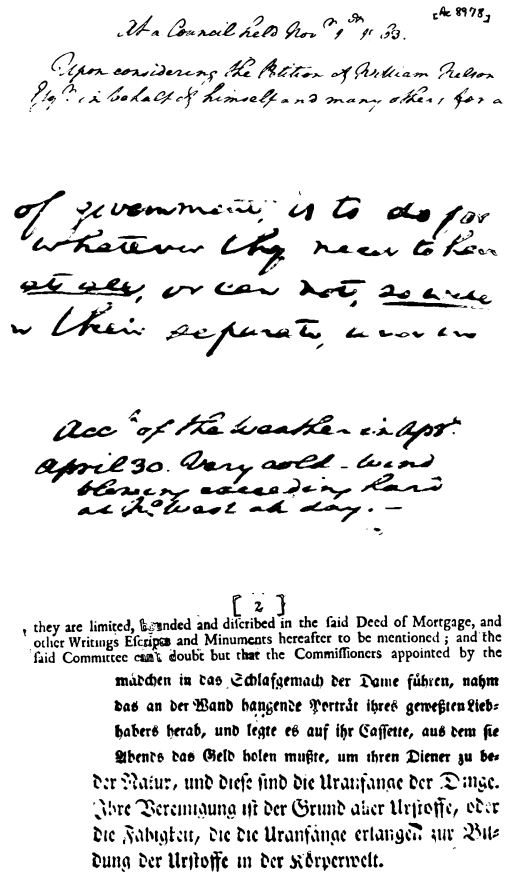 [Ac 8978]
At a Council held Nov
Upon considering the Petition of William Nelson
Esqr. in behalf of himself and many others for a
of government, is to do for
whatever they need to have
at all, or can not, so well
in their separate, and in
Acct of the Weather in Apr.
April 30. Very cold - Wind
blowing exceeding hard
at No West all day. —
[ 2 ]
they are limited, bounded and discribed in the said Deed of Mortgage, and
other Writings Escripts and Minuments hereafter to be mentioned; and the
said Committee can't doubt but that the Commissioners appointed by the
mädchen in das Schlafgemach der Dame führen, nahm
das an der Wand hangende Porträt ihres geweßten Lieb-
habers herab, und legte es auf ihr Cassette, aus dem sie
Abends das Geld holen mußte, um ihren Diener zu be-
der Natur, und diese sind die Uranfange der Dinge.
Ihre Vereinigung ist der Grund aller Urstoffe, oder
die Fähigkeit, die die Uranfänge erlangen zur Bil-
dung der Urstoffe in der Körperwelt.